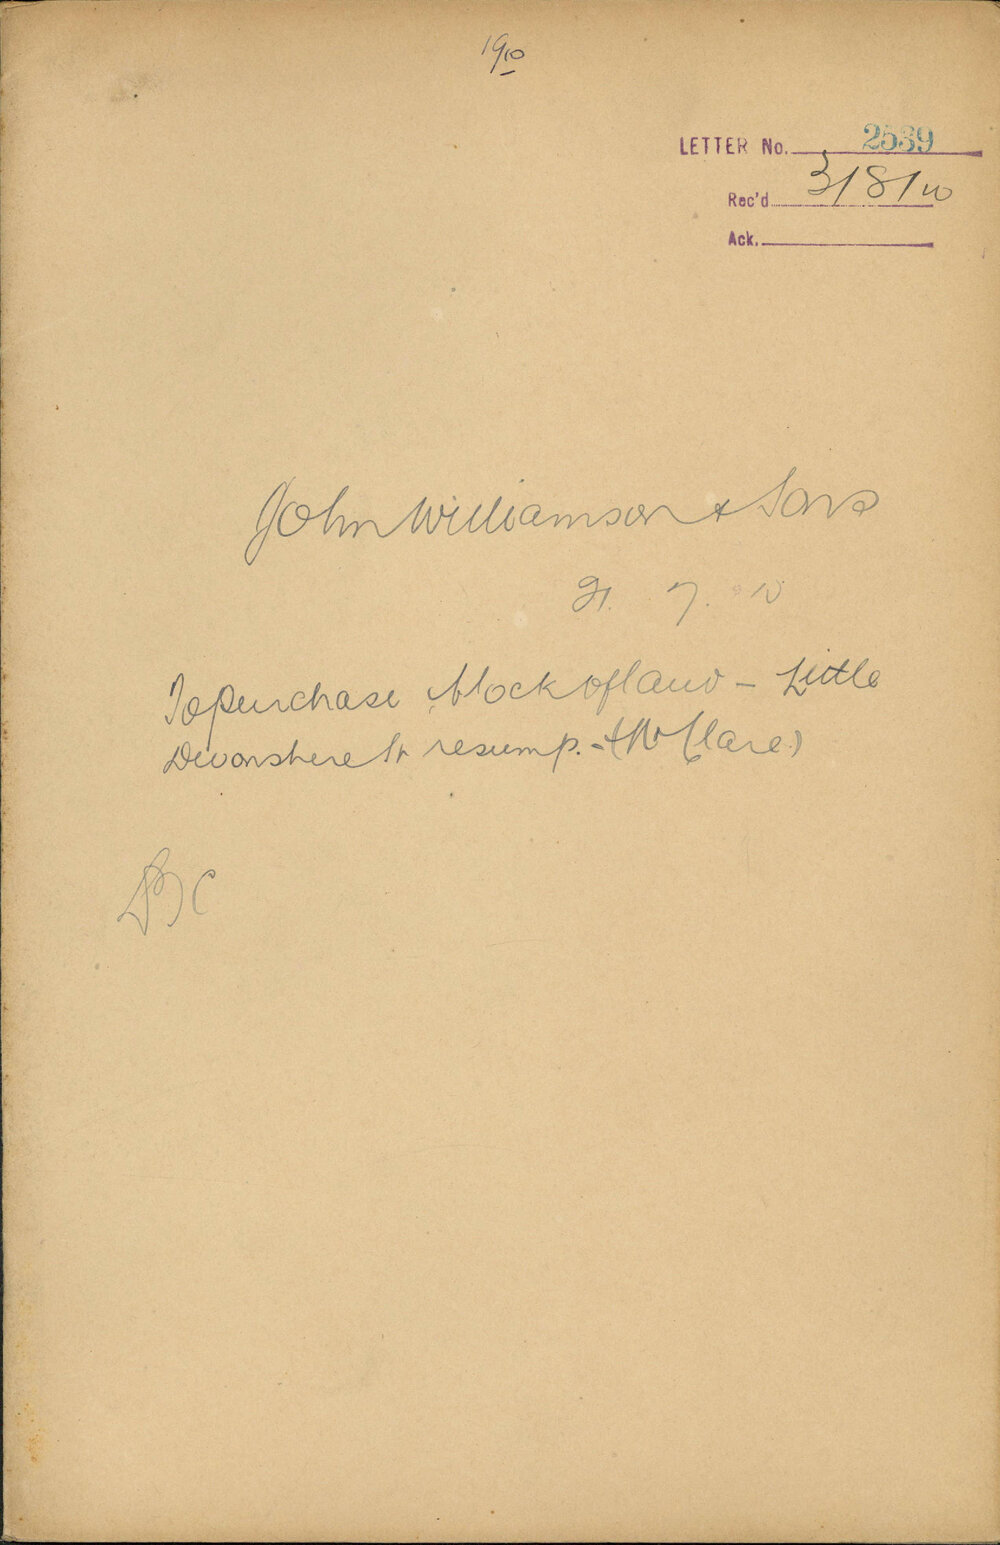 1910
LETTER No. 2539
Rec'd 3/8/10
Ack.
John Williamson & Sons
21. 7. 10
To purchase block of land - Little
Devonshere St resump. - (Clare)